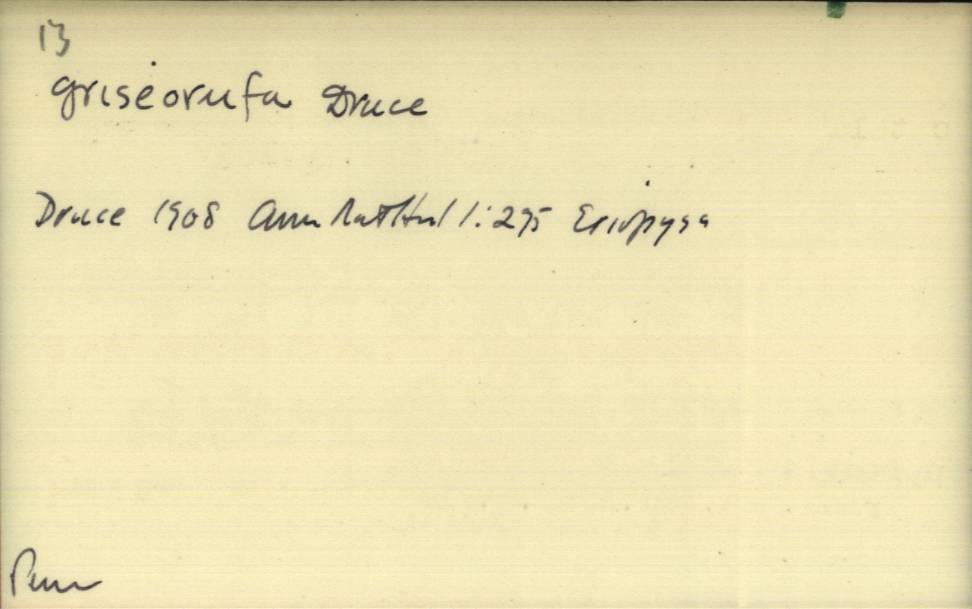 13
griseorufa Druce
Druce 1908 Ann Nat Hist 1:295 Eriopyga
Peru